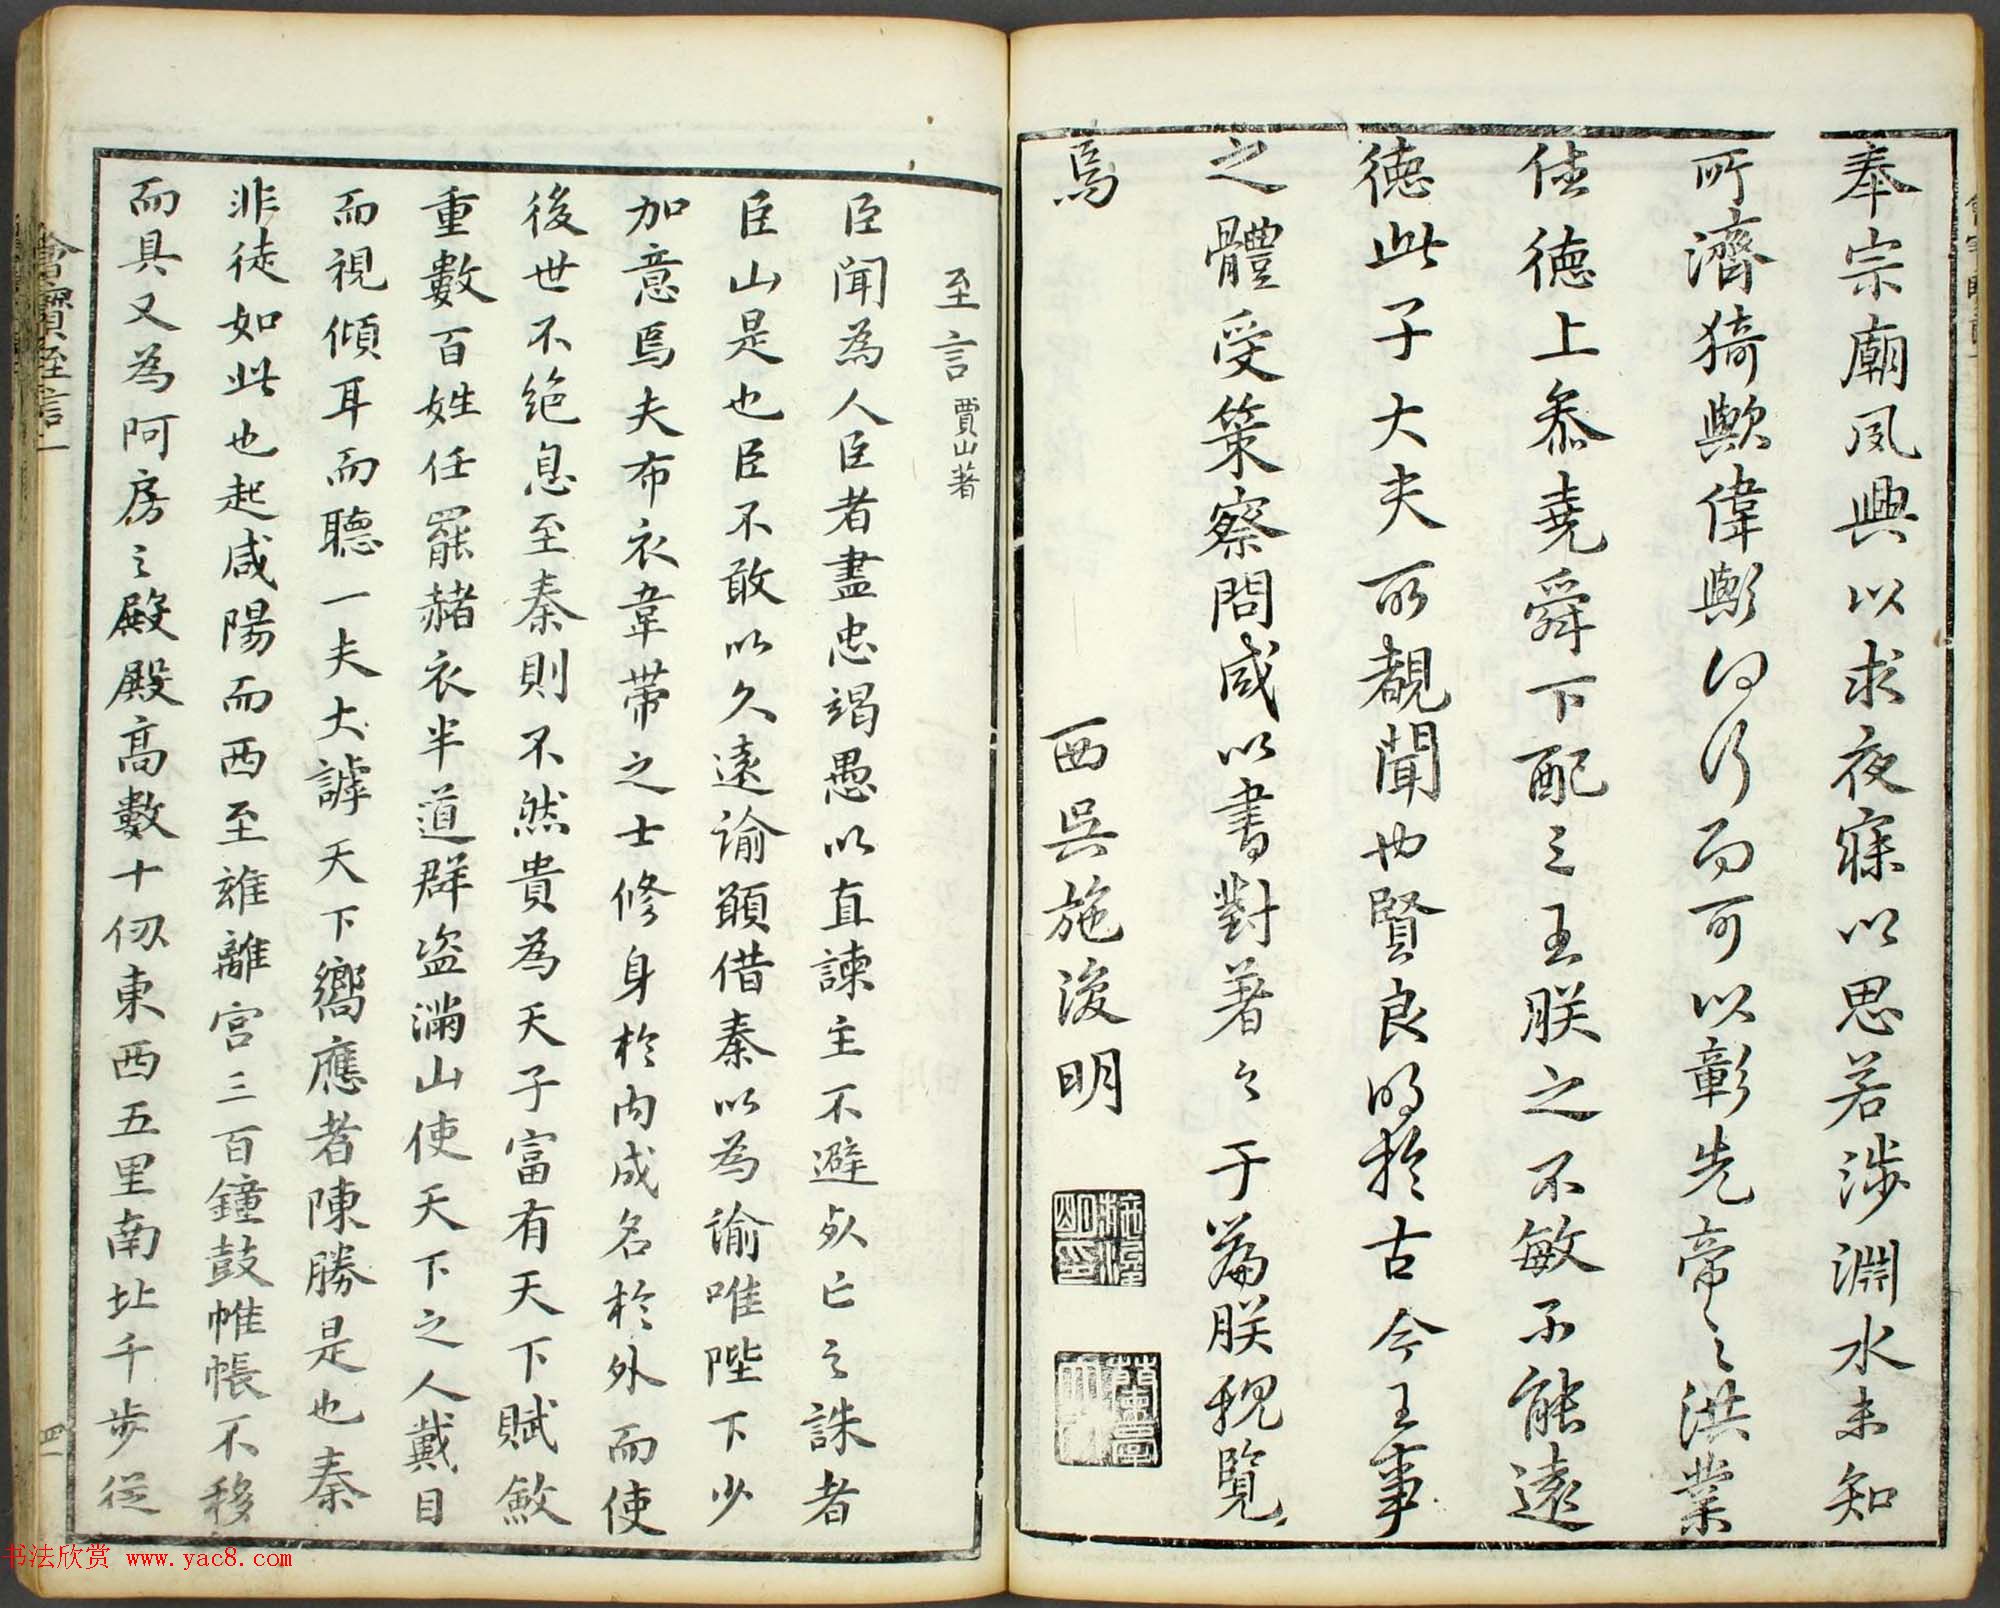 奉宗廟夙興以求夜寐以思若涉淵水未知
所濟猗歟偉歟何行而可以彰先帝之洪業
休德上參堯舜下配三王朕之不敏不能遠
德此子大夫所覩聞也賢良明於古今王事
之體受策察問咸以書對著之于篇朕親覽
焉
西吳施浚明
至言 賈山著
臣聞為人臣者盡忠竭愚以直諫主不避死亡之誅者
臣山是也臣不敢以久遠諭願借秦以為諭唯陛下少
加意焉夫布衣韋帶之士修身於內成名於外而使
後世不絕息至秦則不然貴為天子富有天下賦斂
重數百姓任罷赭衣半道群盜滿山使天下之人戴目
而視傾耳而聽一夫大謼天下嚮應者陳勝是也秦
非徒如此也起咸陽而西至雍離宮三百鐘鼓帷帳不移
而具又為阿房之殿殿高數十仞東西五里南北千步從
賈至言一
四一
书法欣赏 www.yac8.com